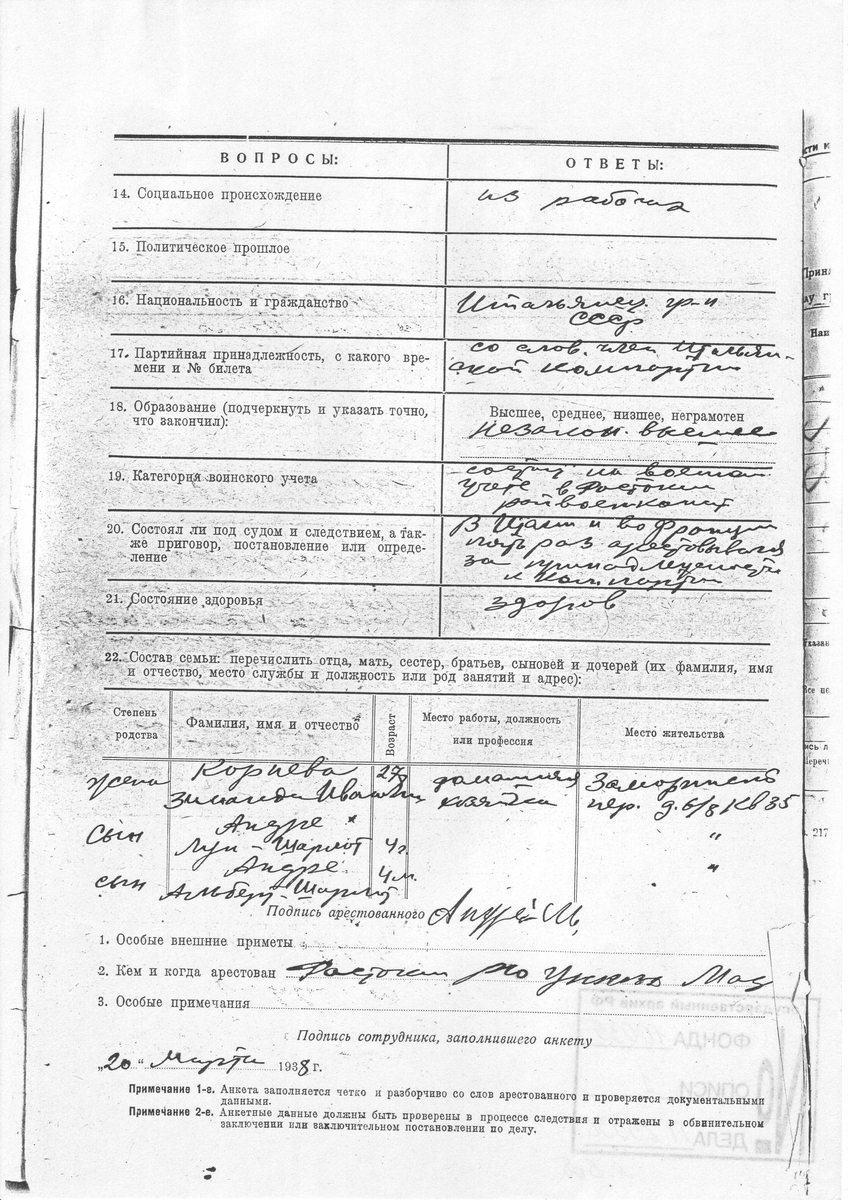 ВОПРОСЫ:
ОТВЕТЫ:
14. Социальное происхождение
из рабочих
15. Политическое прошлое
16. Национальность и гражданство
Итальянец. гр-н
СССР
17. Партийная принадлежность, с какого вре-
мени и № билета
со слов. член Итальян-
ской компартии
18. Образование (подчеркнуть и указать точно,
что закончил):
Высшее, среднее, низшее, неграмотен
незакон. высшее
19. Категория воинского учета
состоит на военом
учете в Ростоким
райвоенкомат
20. Состоял ли под судом и следствием, а так-
же приговор, постановление или опреде-
ление
В Итали и во Франции
пять раз арестовывался
за принадлежность
к компартии
21. Состояние здоровья
здоров
22. Состав семьи: перечислить отца, мать, сестер, братьев, сыновей и дочерей (их фамилия, имя
и отчество, место службы и должность или род занятий и адрес):
Степень
родства
Фамилия, имя и отчество
Возраст
Место работы, должность
или профессия
Место жительства
жена Корнева 27 домашняя
хозяйка
пер. д. 6/8 кв 35
сын Андре
Луи-Шарлот 4 г. "
сын Андре 4 м. "
Альберт-Шарлот
Подпись арестованного Андрей М,
1. Особые внешние приметы
2. Кем и когда арестован Ростоким рo УНКВД Мос
3. Особые примечания
Подпись сотрудника, заполнившего анкету
„20" Марта 1938 г.
Примечание 1-е. Анкета заполняется четко и разборчиво со слов арестованного и проверяется документальными
данными.
Примечание 2-е. Анкетные данные должны быть проверены в процессе следствия и отражены в обвинительном
заключении или заключительном постановлении по делу.
ФОНДА
ОПИСИ
ДЕЛА
217